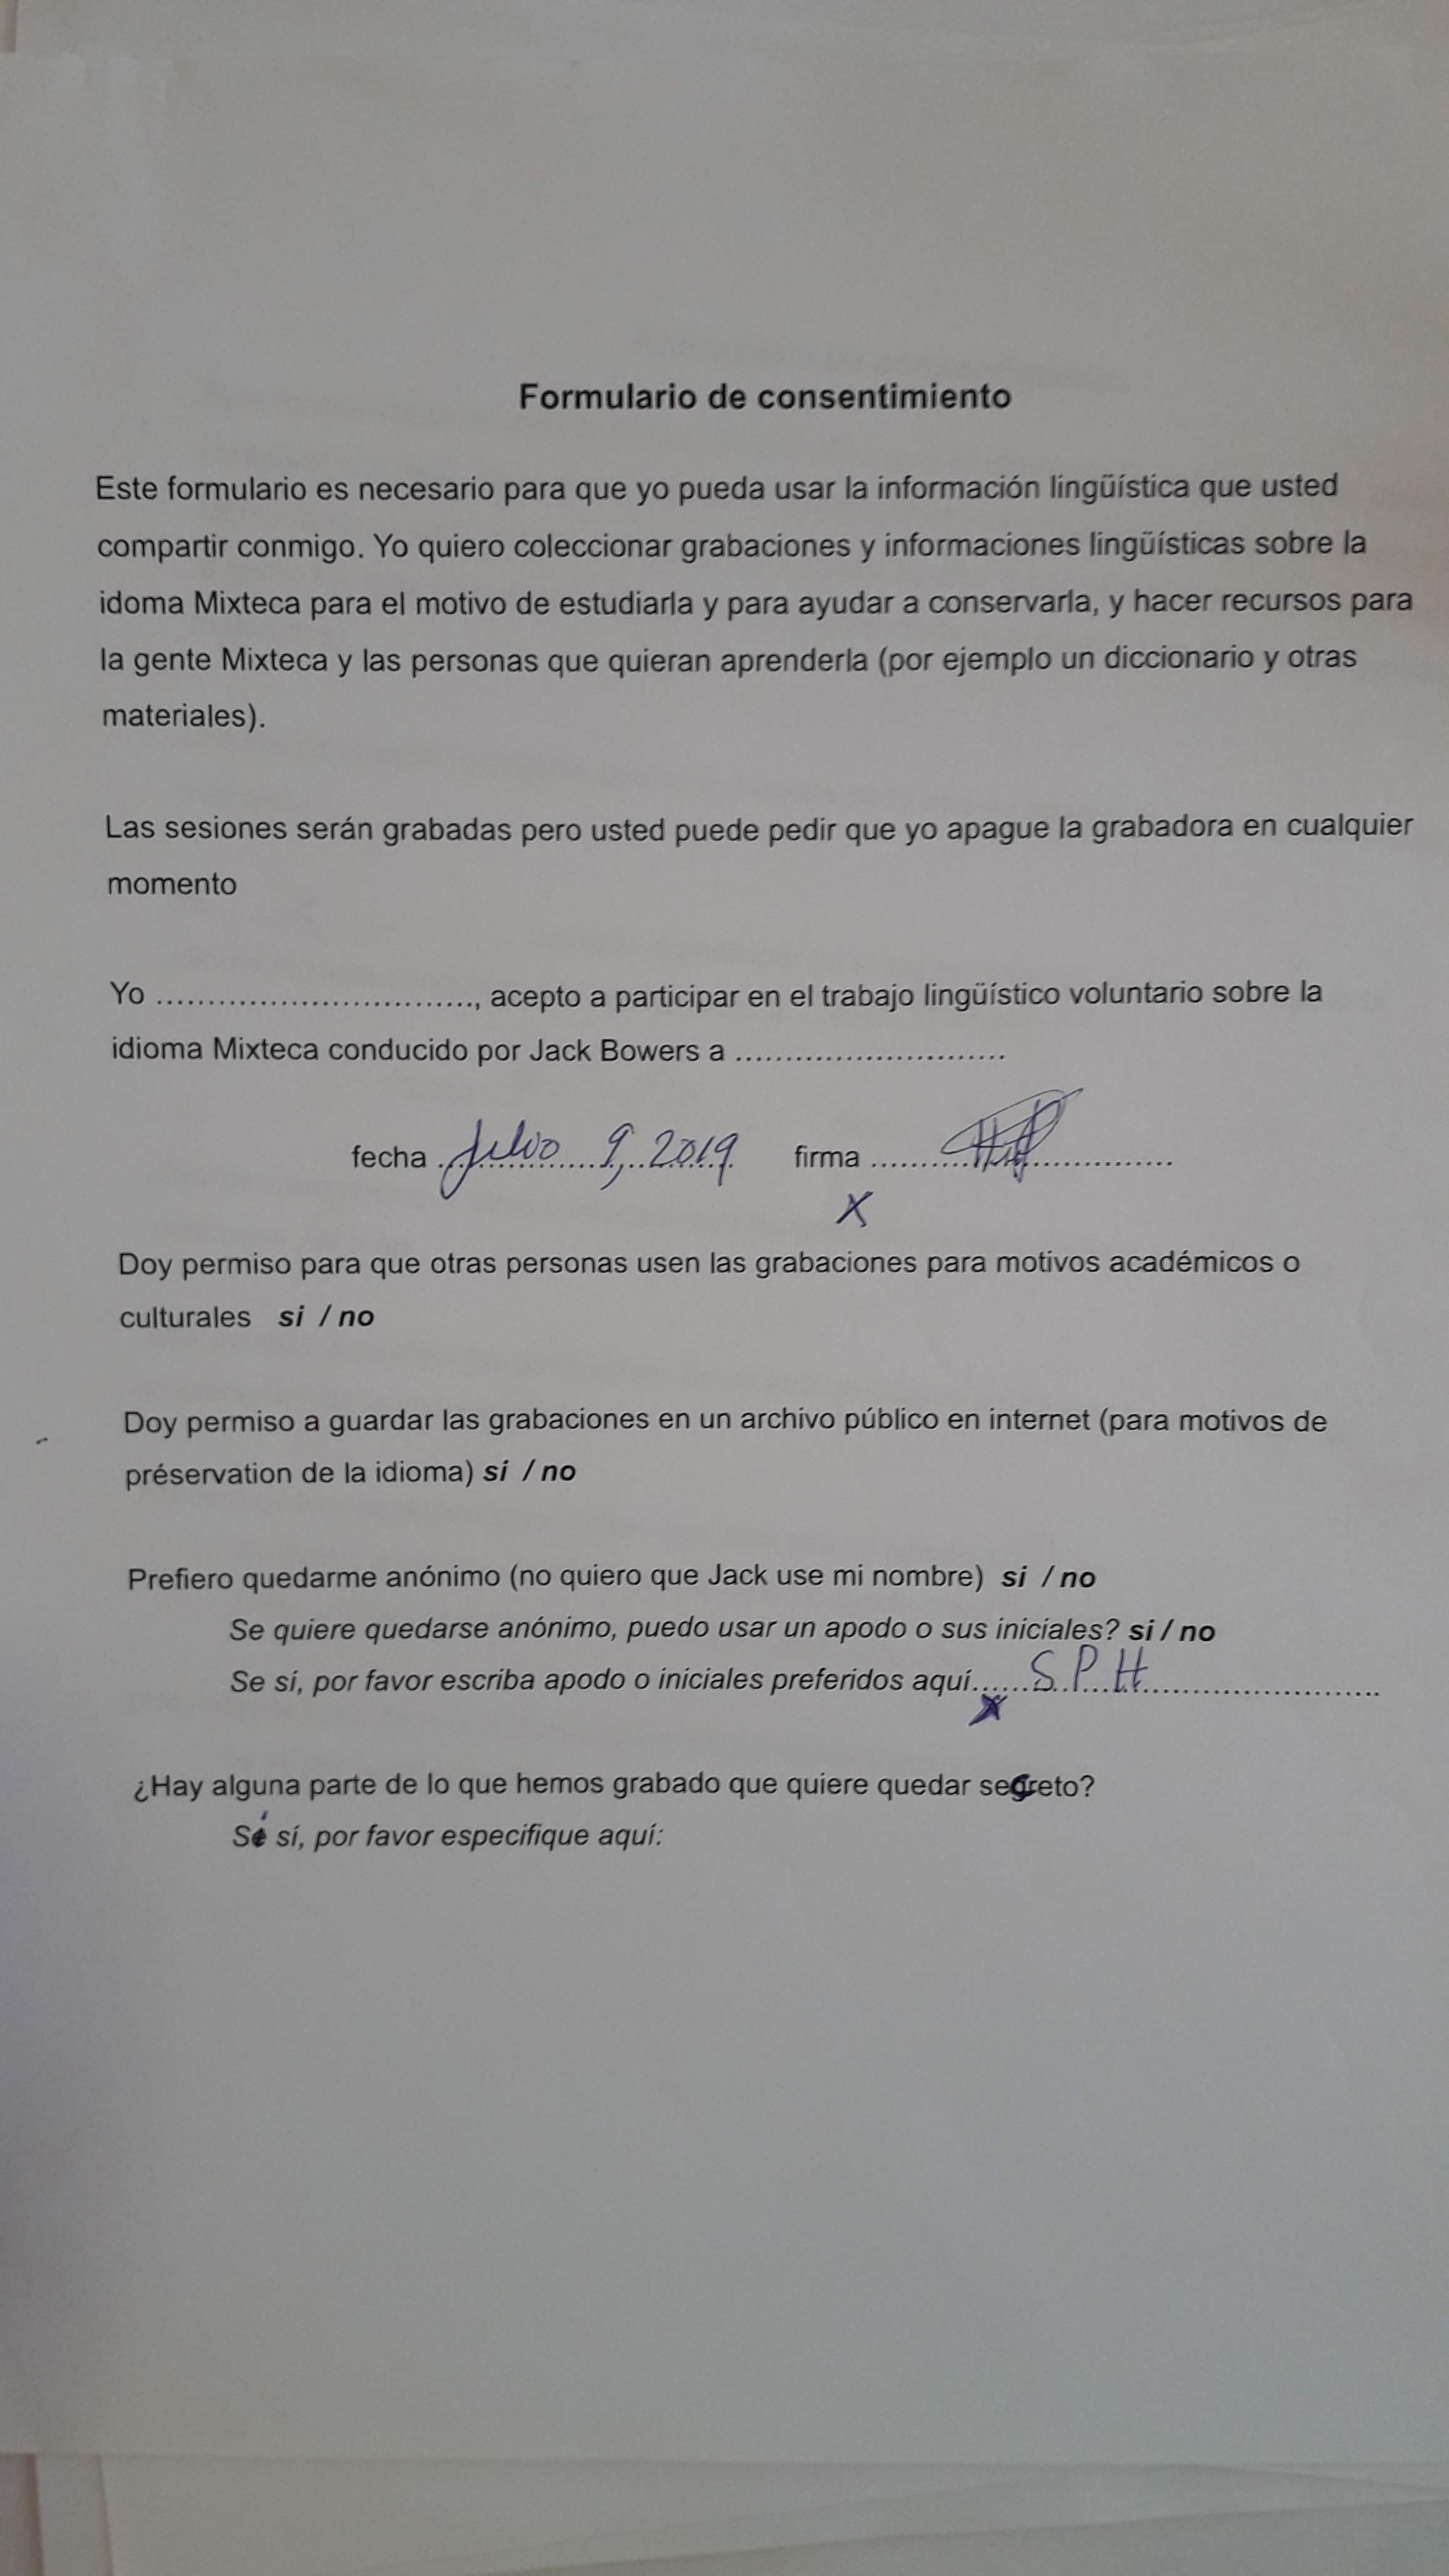 Formulario de consentimiento
Este formulario es necesario para que yo pueda usar la información lingüística que usted
compartir conmigo. Yo quiero coleccionar grabaciones y informaciones lingüísticas sobre la
idoma Mixteca para el motivo de estudiarla y para ayudar a conservarla, y hacer recursos para
la gente Mixteca y las personas que quieran aprenderla (por ejemplo un diccionario y otras
materiales).
Las sesiones serán grabadas pero usted puede pedir que yo apague la grabadora en cualquier
momento
Yo ................................, acepto a participar en el trabajo lingüístico voluntario sobre la
idioma Mixteca conducido por Jack Bowers a ...........................
fecha Julio 9, 2019 firma ..............................
X
Doy permiso para que otras personas usen las grabaciones para motivos académicos o
culturales si / no
Doy permiso a guardar las grabaciones en un archivo público en internet (para motivos de
préservation de la idioma) si / no
Prefiero quedarme anónimo (no quiero que Jack use mi nombre) si / no
Se quiere quedarse anónimo, puedo usar un apodo o sus iniciales? si / no
Se sí, por favor escriba apodo o iniciales preferidos aquí...... S.P.H........................
X
¿Hay alguna parte de lo que hemos grabado que quiere quedar secreto?
Si sí, por favor especifique aquí: